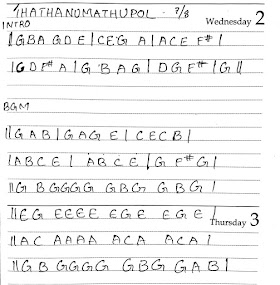 THATHANUMATHUPOL - 7/8
INTRO
Wednesday 2
|GBA GDE|CEG A|ACE F#|
||GDF# A|GBAG|DGF#|G||
BGM
||GAB|GAGE|CECB|
|ABCE|ABCE|G F#G|
||GBGGGG GBG GBG|
||EG EEEE EGE EGE|
Thursday 3
||AC AAAA ACA ACA|
||GB GGGG GBG GAB|